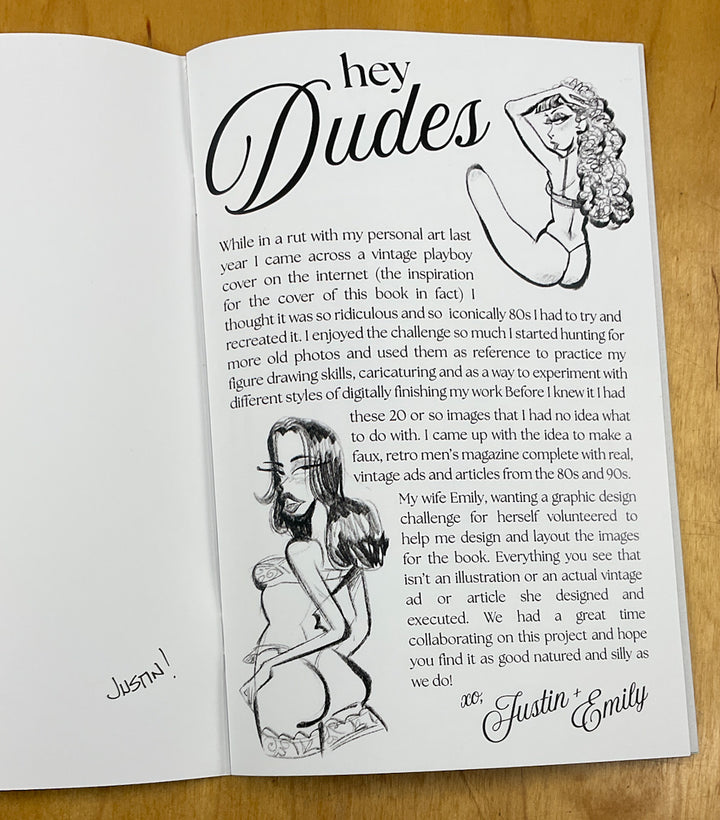 hey
Dudes
While in a rut with my personal art last
year I came across a vintage playboy
cover on the internet (the inspiration
for the cover of this book in fact) I
thought it was so ridiculous and so iconically 80s I had to try and
recreated it. I enjoyed the challenge so much I started hunting for
more old photos and used them as reference to practice my
figure drawing skills, caricaturing and as a way to experiment with
different styles of digitally finishing my work Before I knew it I had
these 20 or so images that I had no idea what
to do with. I came up with the idea to make a
faux, retro men's magazine complete with real,
vintage ads and articles from the 80s and 90s.
My wife Emily, wanting a graphic design
challenge for herself volunteered to
help me design and layout the images
for the book. Everything you see that
isn't an illustration or an actual vintage
ad or article she designed and
executed. We had a great time
collaborating on this project and hope
you find it as good natured and silly as
we do!
xo, Justin + Emily
JUSTIN!